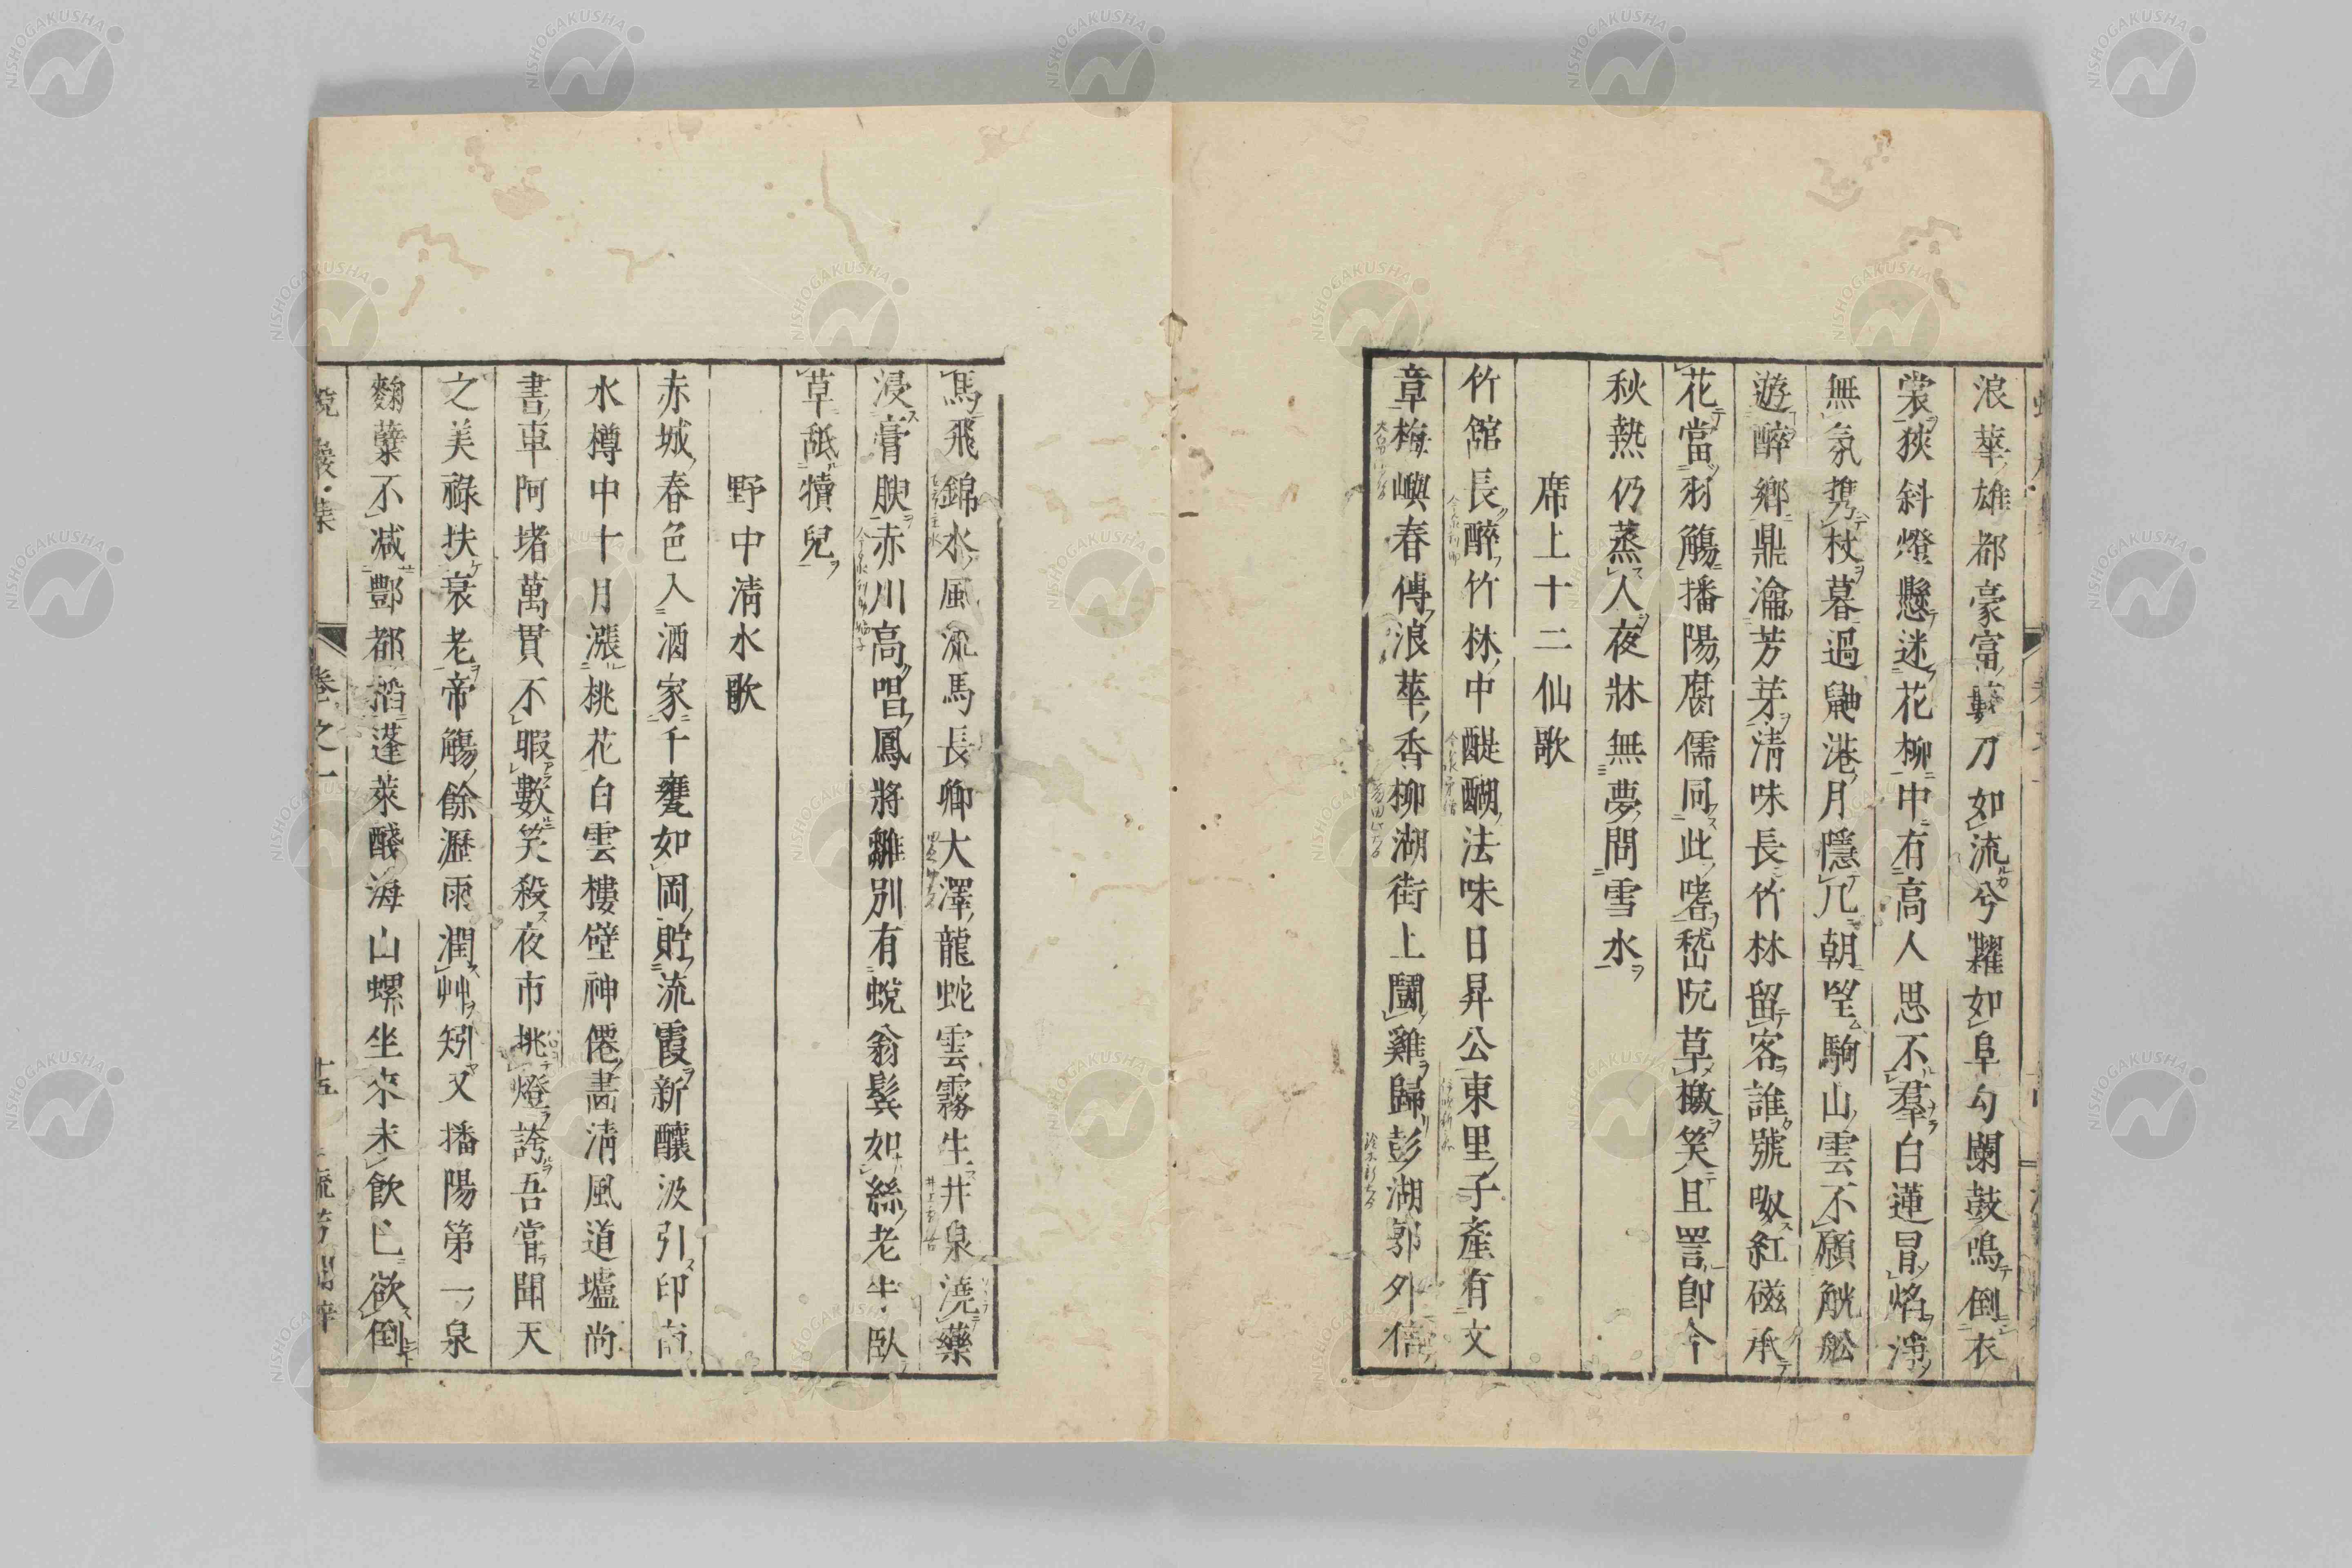 浪華雄都豪富藪刀如流兮糶如阜勾闌鼓鳴倒衣
裳狹斜燈懸迷花柳中有高人思不羣白蓮冒焰淨
無氛携杖暮過鼬港月隱几朝望駒山雲不願觥舩
遊醉鄉鼎瀹芳芽淸味長竹林留客誰號呶紅磁承
花當羽觴播陽腐儒同此嗜嵇阮草檄笑且詈卽今
秋熱仍蒸人夜牀無夢問雪水
席上十二仙歌
竹舘長醉竹林中醍醐法味日昇公東里子產有文
章梅嶼春傳浪華香柳湖街上鬪雞歸彭湖郭外信
馬飛錦水風流馬長卿大澤龍蛇雲霧生井泉澆藥
浸膏腴赤川高唱鳳將雛別有蛻翁鬂如絲老牛臥
草舐犢兒
野中淸水歌
赤城春色入酒家千甕如岡貯流霞新釀汲引印南
水樽中十月漲桃花白雲樓壁神僊畵淸風道壚尚
書車阿堵萬貫不暇數笑殺夜市挑燈誇吾嘗聞天
之美祿扶衰老帝觴餘瀝雨潤艸矧又播陽第一泉
麴糵不减酆都滔蓬萊醆海山螺坐來未飮已欲倒
蛻巖集 卷之一 十五
NISHOGAKUSHA